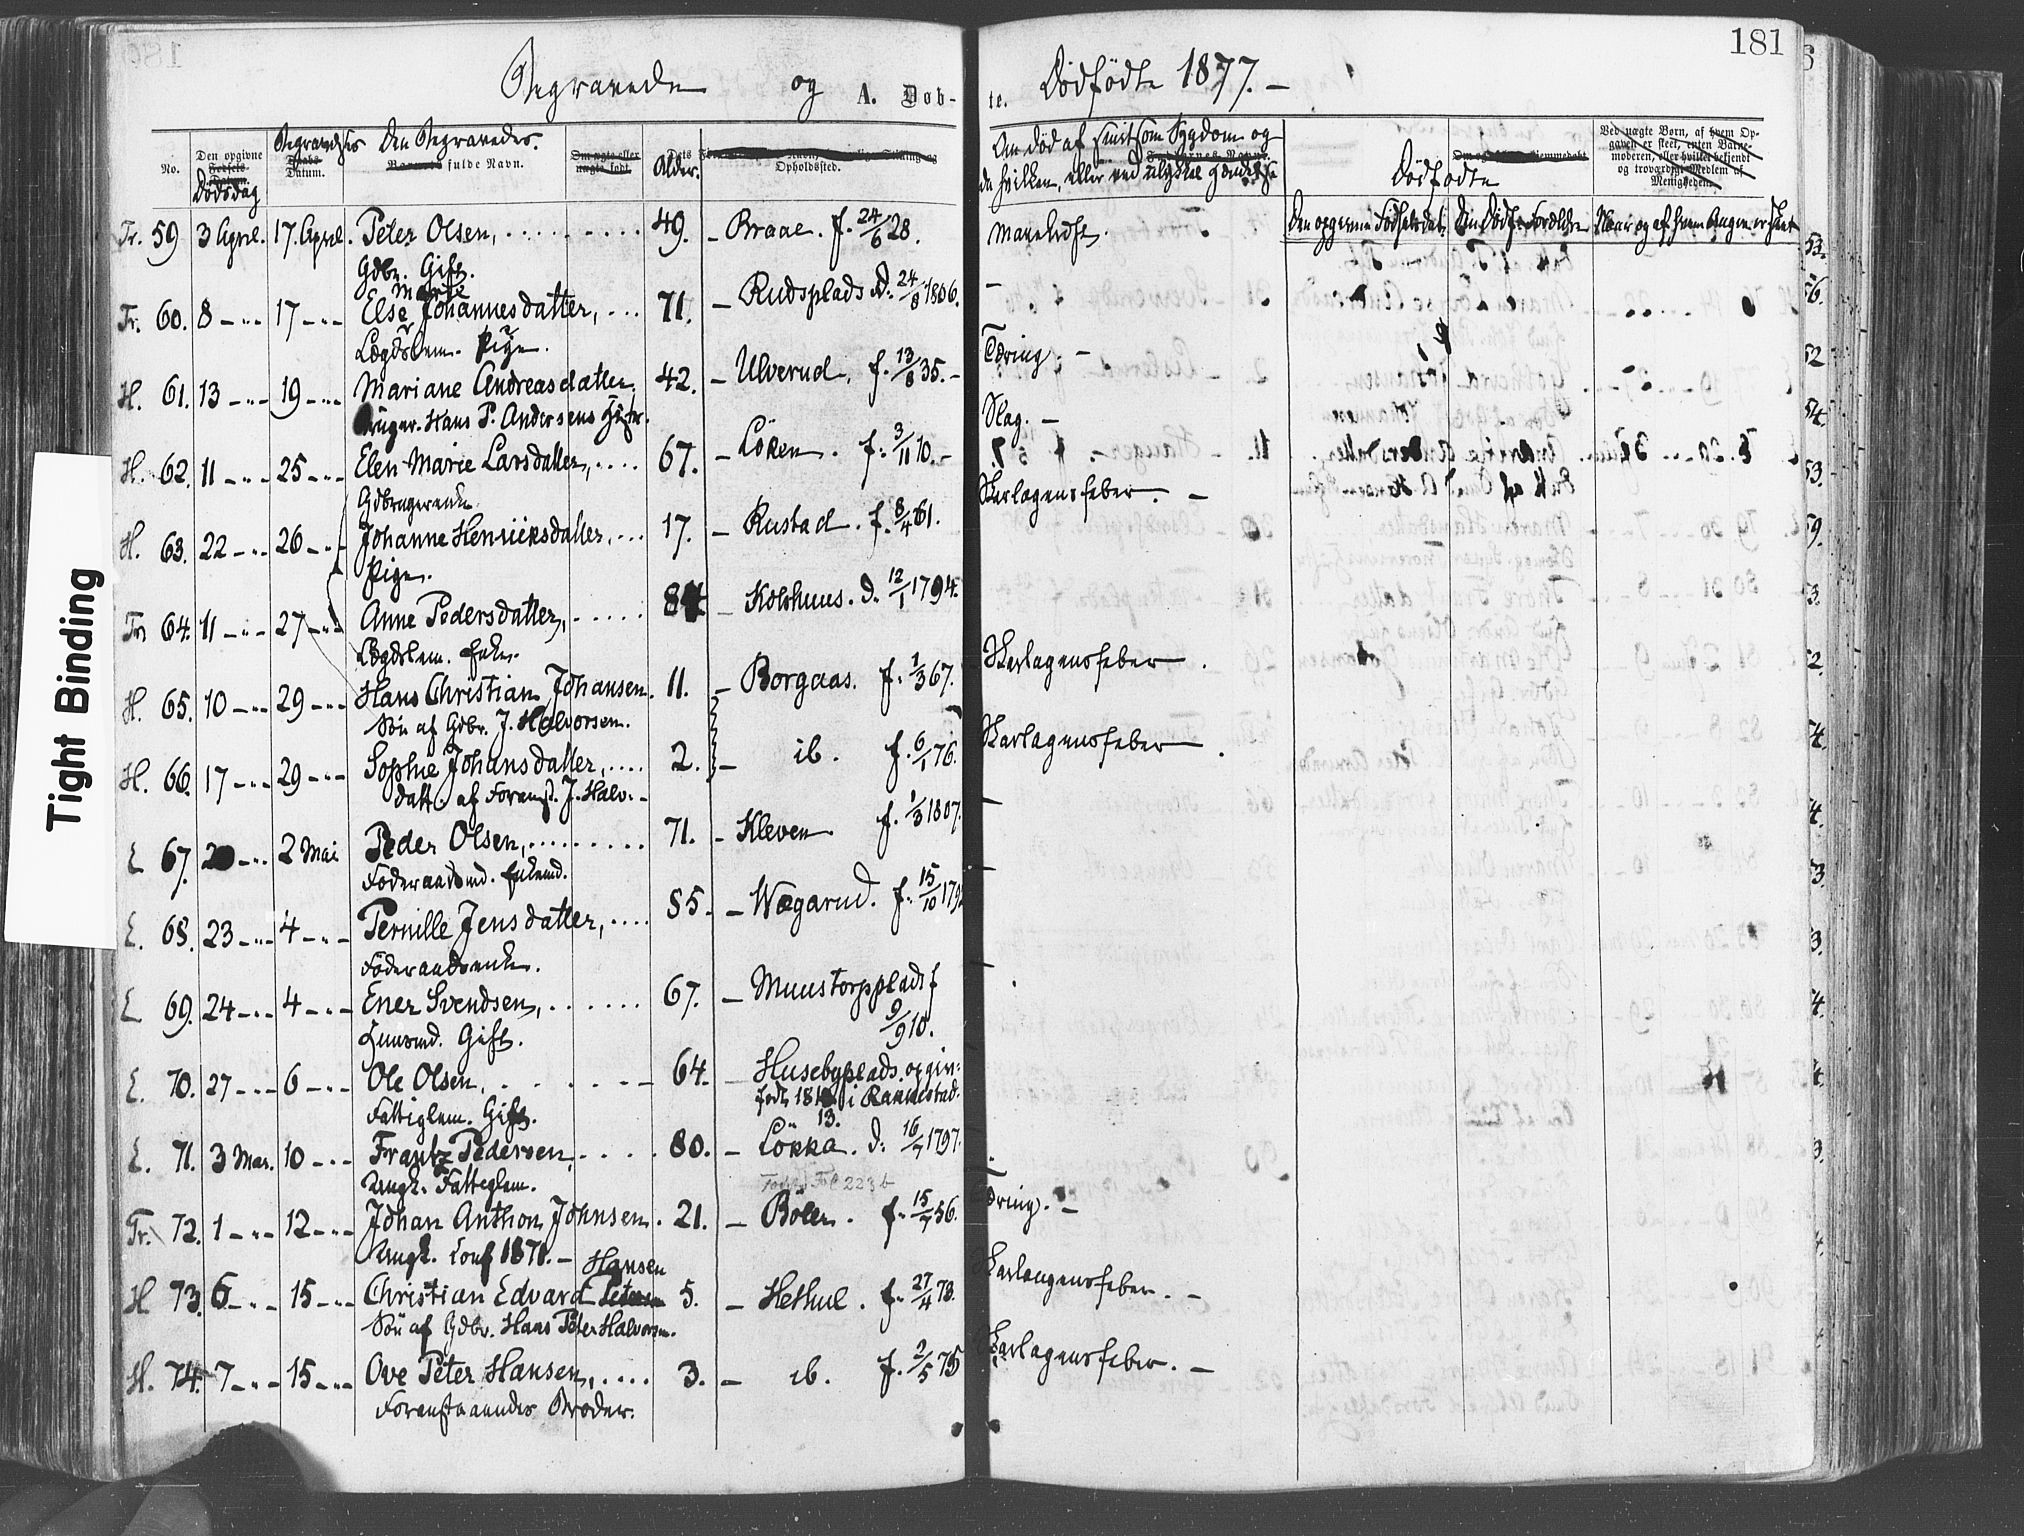 181
Begravede og A. Døb-
te. Dødfødte 1877. –
No.
Den opgivne Fødsels Datum. Dødsdag
Begravelses Daabs Datum.
Den Begravedes Barnets fulde Navn.
Om ægte eller uægte født.
Alder.
Opholdsted.
Om død af smitsom Sygdom og
da hvilken, eller ved ulykkel. Hændelse
Dødfødte
Ved uægte Børn, af hvem Op-
gaven er skeet, enten Barne-
moderen, eller hvilket bekjendt
og troværdigt Medlem af
Menigheden.
Den opgivne Fødselsdat. Den Dødf. Forældre Naar og af hvem Angiv. er skeet
Fr. 59 3 April. 17. April. Peter Olsen, 49. – Braae. f. 24/6 28.
Gdbr. Gift.
Marie
Fr. 60. 8 – " – 17 – " – Else Johannesdatter, 71. – Rudsplads. D. 24/8 1806. –
Lægdslem. Pige.
H. 61. 13 – " – 19 – " – Mariane Andreasdatter, 42. – Ulverud. f. 13/8 35. – Tæring. –
Bruger. Hans P. Andersens Hustr.
H. 62. 11 – " – 25 – " – Elen Marie Larsdatter, 67. – Löken. f. 3/11 10. – Slag. –
Gdbrugerenke
H. 63. 22 – " – 26 – " – Johanne Henriksdatter, 17. – Rustad. f. 8/4 61. Skarlagensfeber. –
Pige.
Fr. 64. 11 – " – 27 – " – Anne Pedersdatter, 84 – Kolshuus. D. 12/1 1794.
Lægdslem. Enke.
H. 65. 10 – " – 29 – " – Hans Christian Johansen. 11. – Borgaas. f. 1/3 67. Skarlagensfeber.
Sön af Gdbr. J. Halvorsen.
H. 66. 17 – " – 29 – " – Sophie Johansdatter, 2. – ib. f. 6/1 76. Skarlagensfeber
Datt. af Forenst. J. Halv. –
E 67. 20 – " – 2 Mai Peder Olsen, 71. – Kleven f. 1/3 1807. –
Föderaadsmd. Enkemd.
E. 68. 23 – " – 4 – " – Pernille Jensdatter, 85. – Wægarud. f. 15/10 179 –
Föderaadsenke.
E 69. 24 – " – 4 – " – Ener Svendsen, 67. – Muustorpplads f –
9/9 10.
Huusmd. Gift.
E. 70. 27 – " – 6 – " – Ole Olsen, 64. – Husebyplads. opgiv:
födt 181 i Rakkestad.
13.
Fattiglem. Gift.
E. 71. 3 Mai. 10 – " – Frantz Pedersen, 80. – Lökka. D. 16/7 1797.
Ungk. Fattiglem.
Fol 223b
Fr. 72. 1 – " – 12 – " – Johan Anthon Johnsen. 21. – Bölen. f. 15/7 56. Tæring. –
Ungk. Conf 1871. –
Hansen
H 73. 6 – " – 15 – " – Christian Edvard Petersen 5. – Hethul. f. 27/4 73. Skarlangensfeber. –
Sön af Gdbr. Hans Peter Halvorsen.
H. 74. 7 – " – 15 – " – Ove Peter Hansen, 3. – ib. f. 2/5 75 Skarlagensfeber. –
Forenstaaendes Broder.
Tight Binding